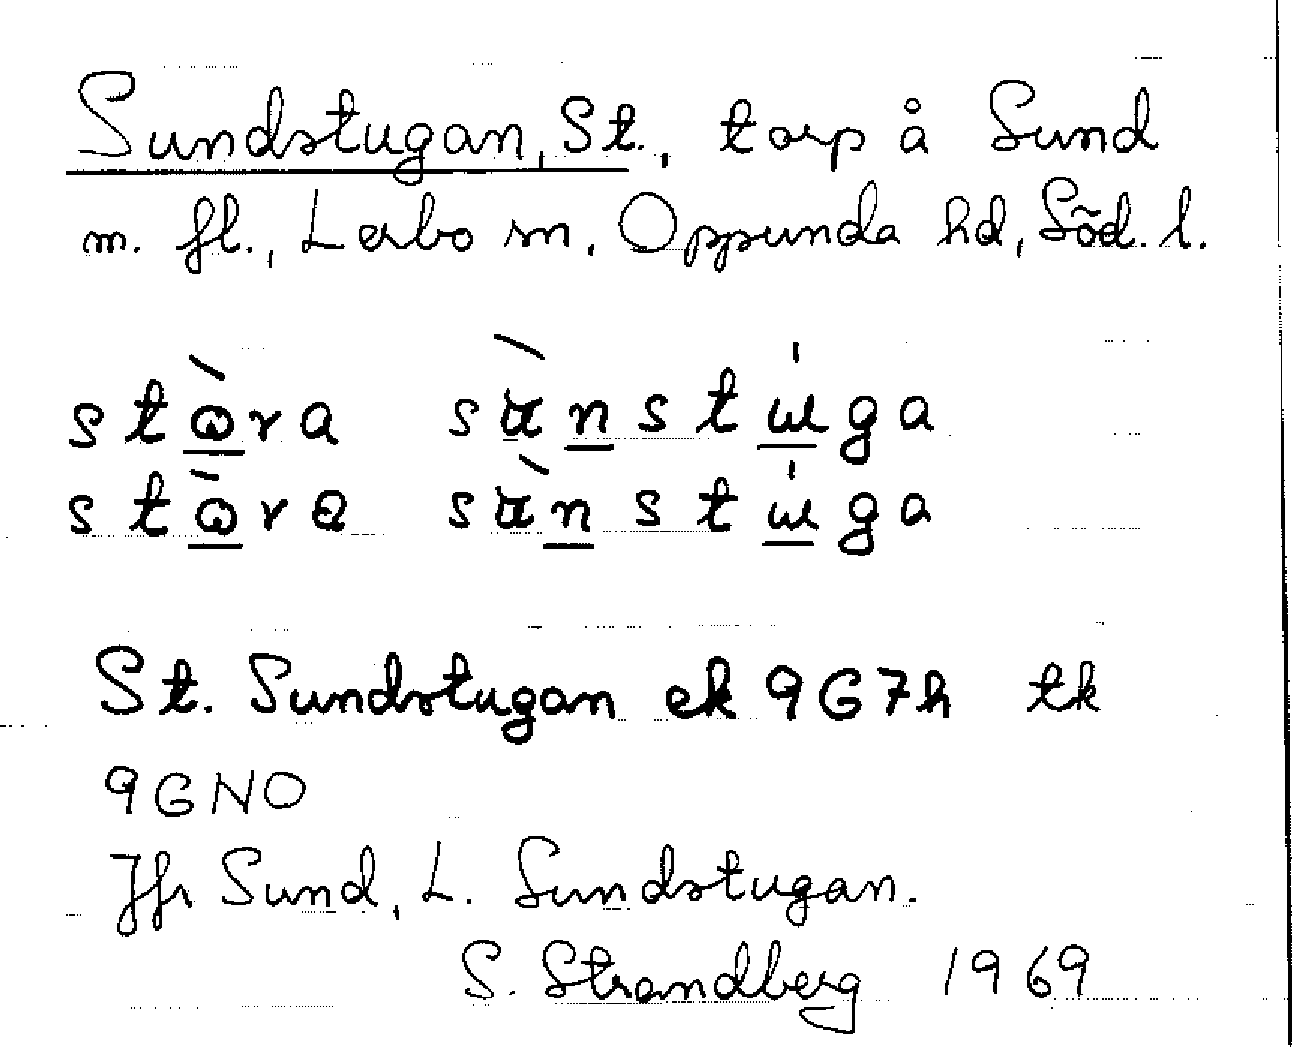 Sundstugan, St., torp å Sund
m. fl., Lerbo sn, Oppunda hd, Söd. l.
stòra sùnstúga
stòrə sùnstúga
St. Sundstugan ek 9G7h tk
9GNO
Jfr Sund, L. Sundstugan.
S. Strandberg 1969